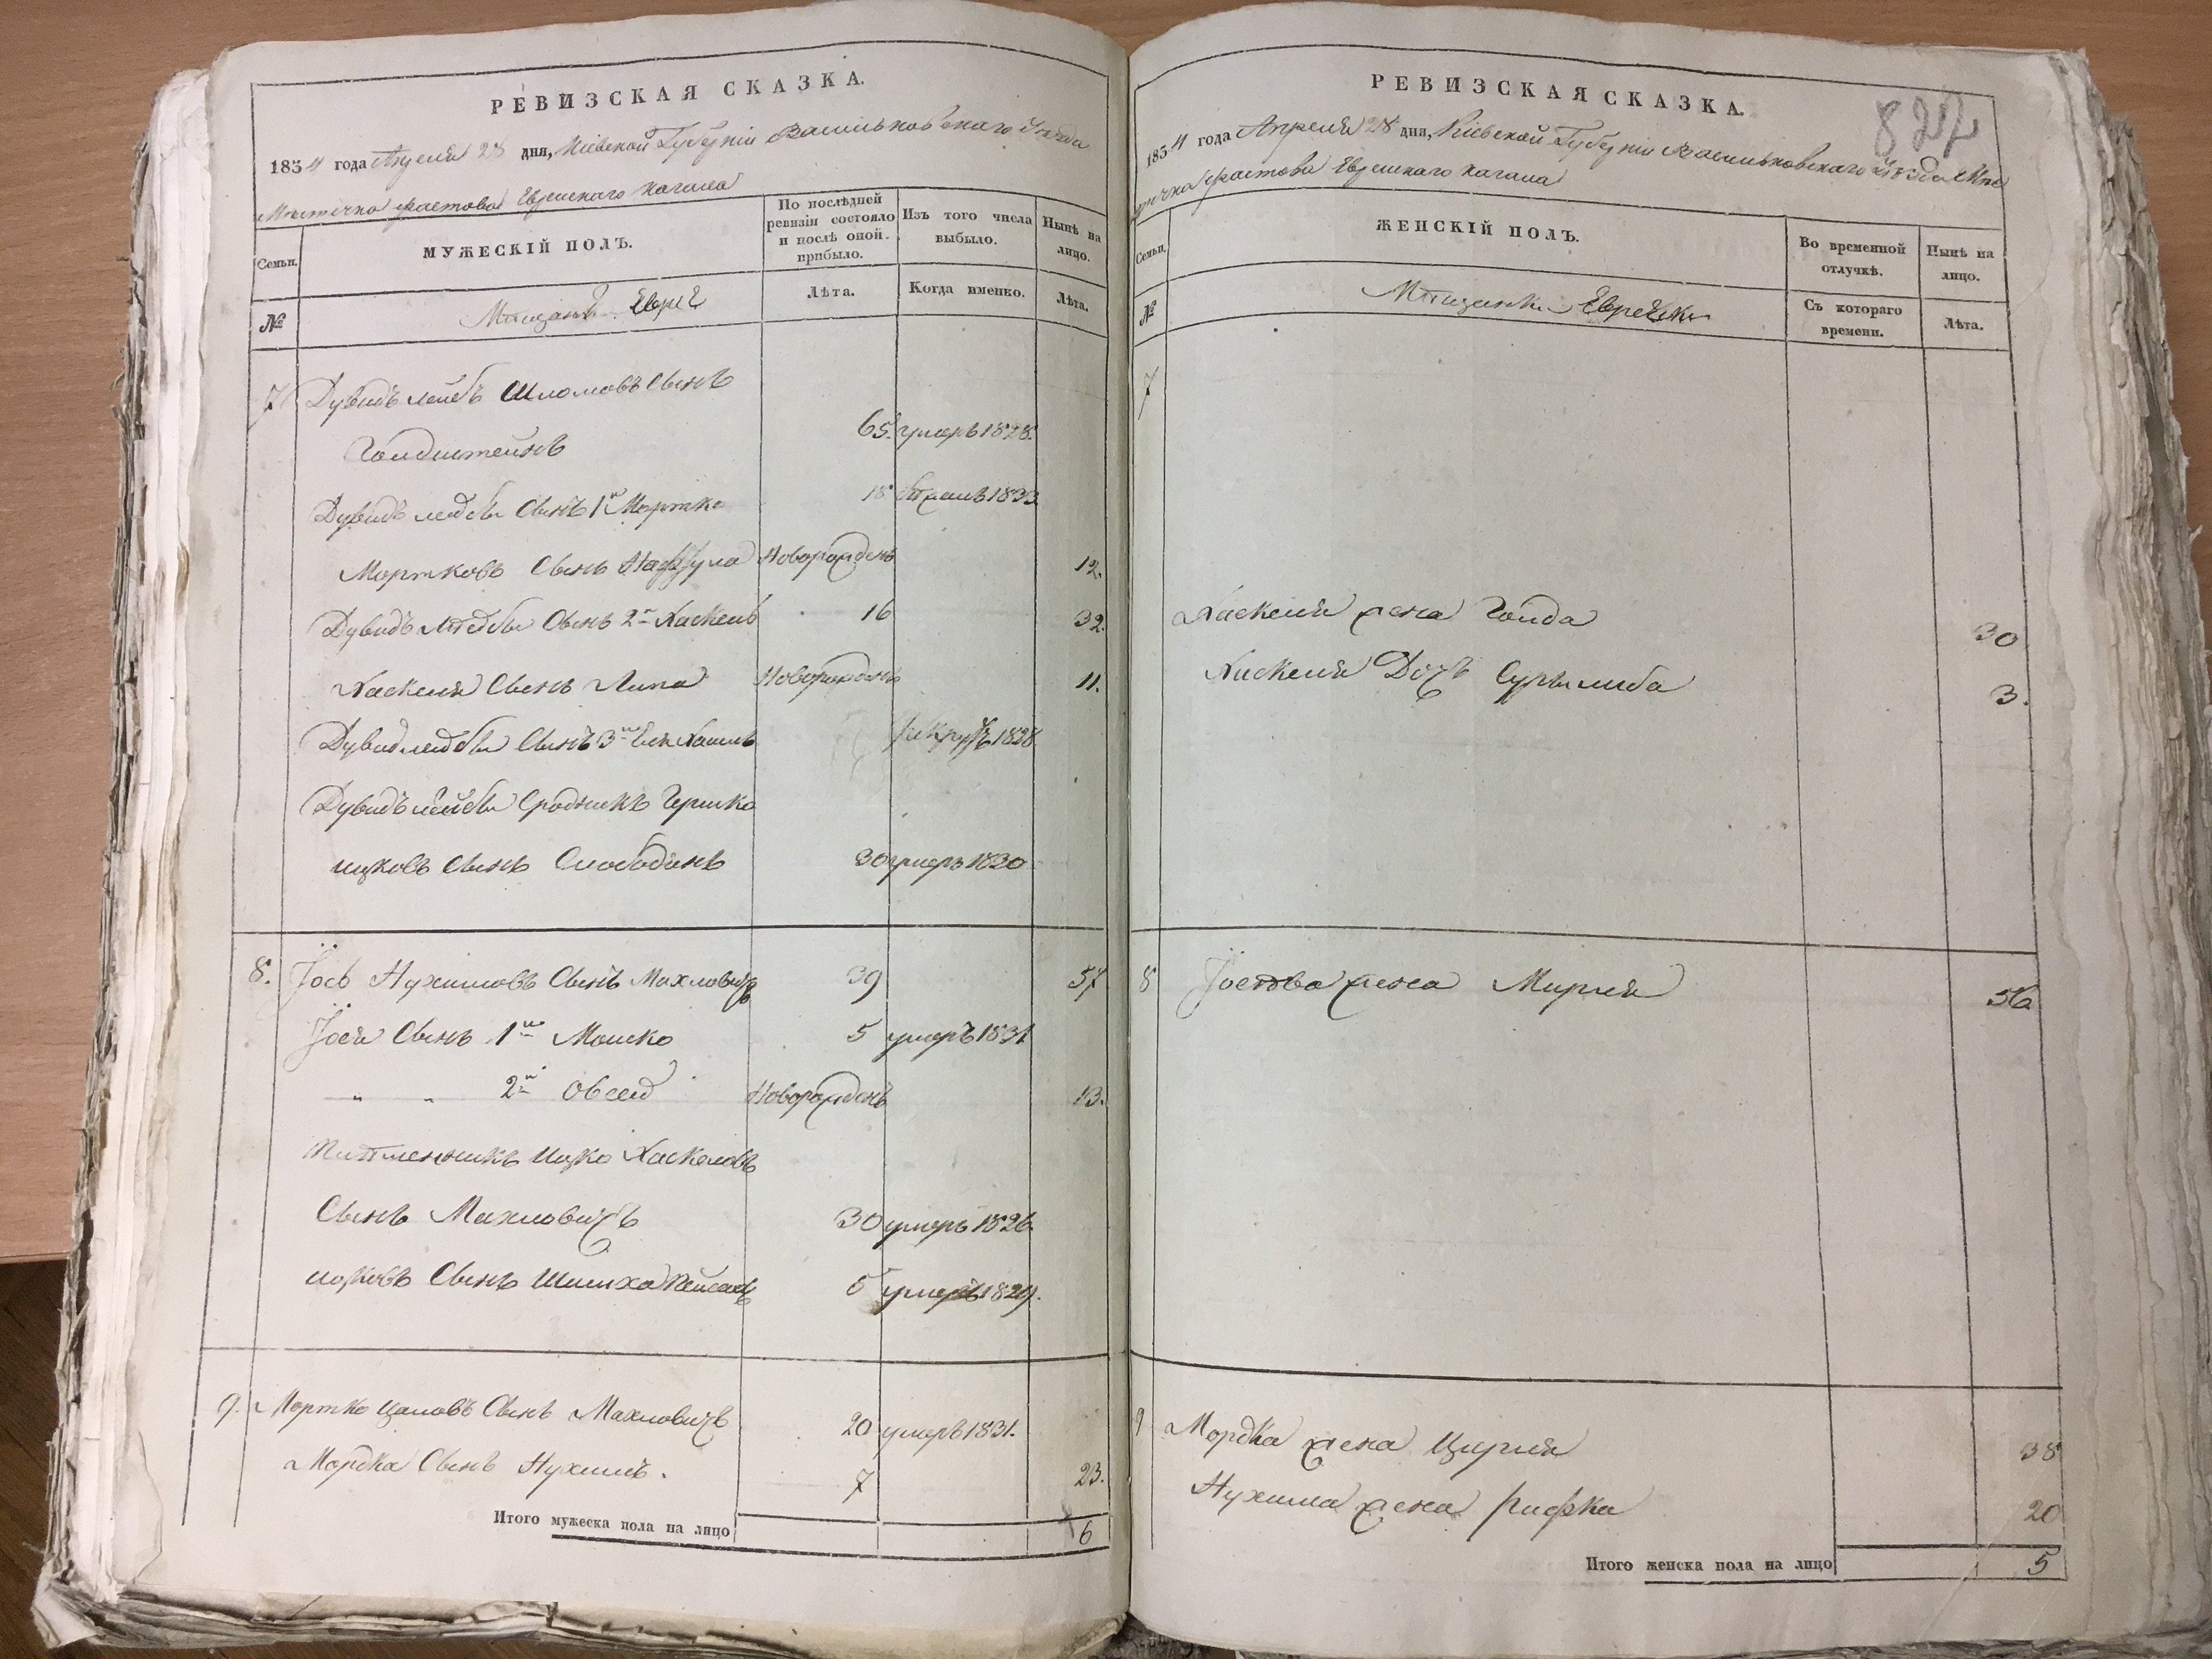 РЕВИЗСКАЯ СКАЗКА.
1834 года Апреля 28 дня, Кіевской Губерніи Васильковскаго Уѣзда
Мѣстечка Фастова Еврейскаго Кагала
Семьи.
МУЖЕСКІЙ ПОЛЪ.
По послѣдней ревизіи состояло и послѣ оной прибыло.
Изъ того числа выбыло.
Нынѣ на лицо.
№
Мѣщанъ Евреи
Лѣта.
Когда именно.
Лѣта.
7 Дувидъ Лейбъ Шломовъ Сынъ
Голдштейнъ 65. умеръ 1828.
Дувидъ Лейбы Сынъ 1й Мортко 18 1833
Мортковъ Сынъ Новорожденъ 12.
Дувидъ Лейбы Сынъ 2й Хаскель 16 32.
Хаскеля Сынъ Липа Новорожденъ 11.
Дувид Лейбы Сынъ 3й Рекрутъ 1828
Дувидъ Лейбы Сродникъ Гершко
Ицковъ Сынъ Слободянъ 30 умеръ 1830
8. Іось Нухимовъ Сынъ Махловичъ 39 57
Іося Сынъ 1й Мошко 5 умеръ 1831
" " 2й Овсей Новорожденъ 13.
Племенникъ Ицко Хаскелевъ
Сынъ Махловичъ 30 умеръ 1826.
Ицковъ Сынъ Шлиха Пейсахъ 5 умеръ 1829.
9. Мортко Цаловъ Сынъ Махловичъ 20 умеръ 1831.
Мордка Сынъ Нухимъ. 7 23.
Итого мужеска пола на лицо 6
827
РЕВИЗСКАЯ СКАЗКА.
1834 года Апреля 28 дня, Кіевской Губерніи Васильковскаго Уѣзда Мѣс
течка Фастова Еврейскаго Кагала
Семьи.
ЖЕНСКІЙ ПОЛЪ.
Во временной отлучкѣ.
Нынѣ на лицо.
№
Мѣщанки Еврейки
Съ котораго времени.
Лѣта.
7
Хаскеля жена Голда 30
Хаскеля Дочь Суры либа 3.
8 Іосева жена Мирля 56
9 Мордка жена Цирля 38
Нухима жена Рифка 20
Итого женска пола на лицо 5